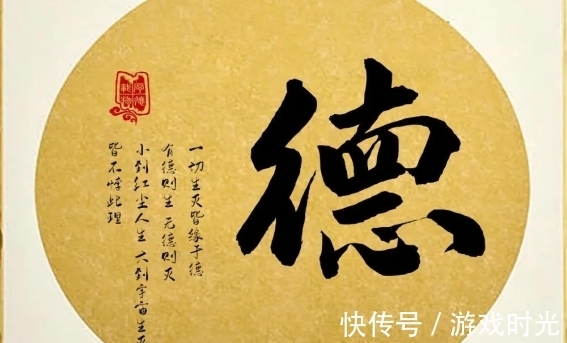 德
一切生灭皆缘于德
有德则生 无德则灭
小到红尘人生 大到宇宙生
皆不悖此理
厚德載物
快传号 / 游戏时光